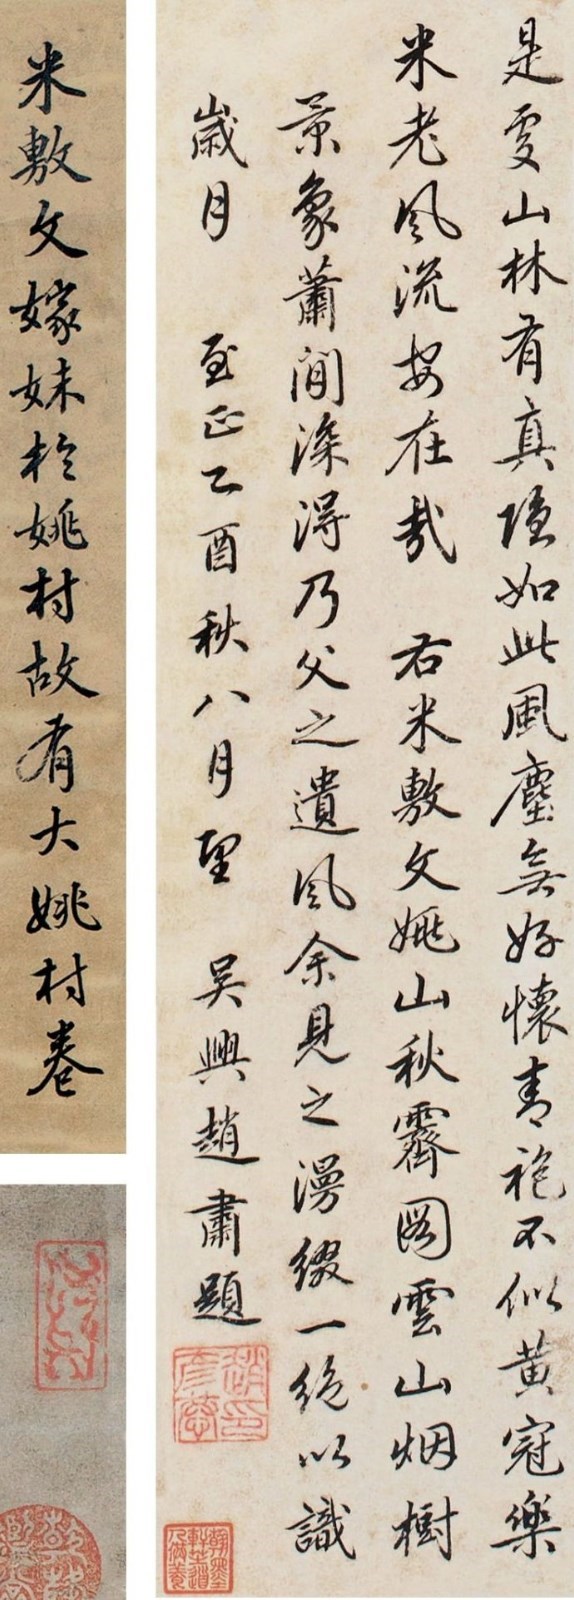 是處山林有真隱如此風塵無好懷青袍不似黃冠樂
米老風流安在哉 右米敷文姚山秋霽圖雲山烟樹
景象蕭閒深得乃父之遺風余見之漫綴一絕以識
歲月 至正乙酉秋八月望 吳興趙肅題
米敷文嫁妹於姚村故有大姚村卷